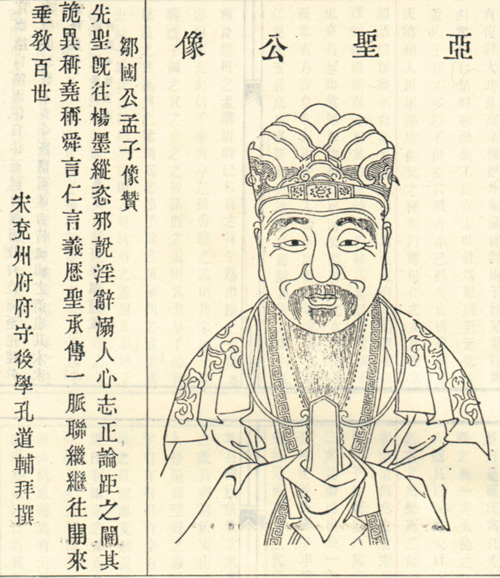 亞聖公像
鄒國公孟子像贊
先聖旣往楊墨縱恣邪說淫辭溺人心志正論距之闢其
詭異稱堯稱舜言仁言義厯聖承傳一脈聯繼繼往開來
垂敎百世
宋兗州府府守後學孔道輔拜撰